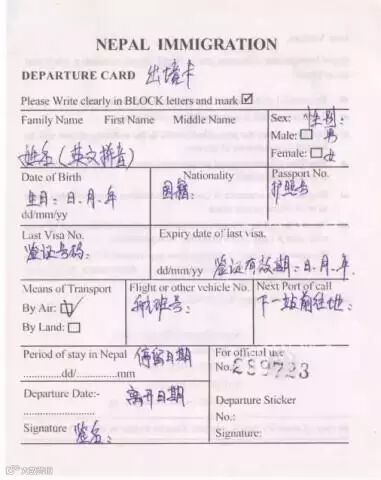 NEPAL IMMIGRATION
DEPARTURE CARD 出境卡
Please Write clearly in BLOCK letters and mark ☑
Family Name First Name Middle Name
姓名(英文拼音)
Sex: 性别:
Male: 男
Female: 女
Date of Birth
生日: 日.月.年
dd/mm/yy
Nationality
国籍:
Passport No.
护照号
Last Visa No.
签证号码:
Expiry date of last visa.
dd/mm/yy 签证有效期: 日.月.年.
Means of Transport
By Air: ☑
By Land:
Flight or other vehicle No.
航班号:
Next Port of call
下一站前往地:
Period of stay in Nepal 停留日期
..............dd/..............mm
Departure Date:- 离开日期
..........................
Signature 签名:
For official use
No. 289723
Departure Sticker
No.:
Signature: